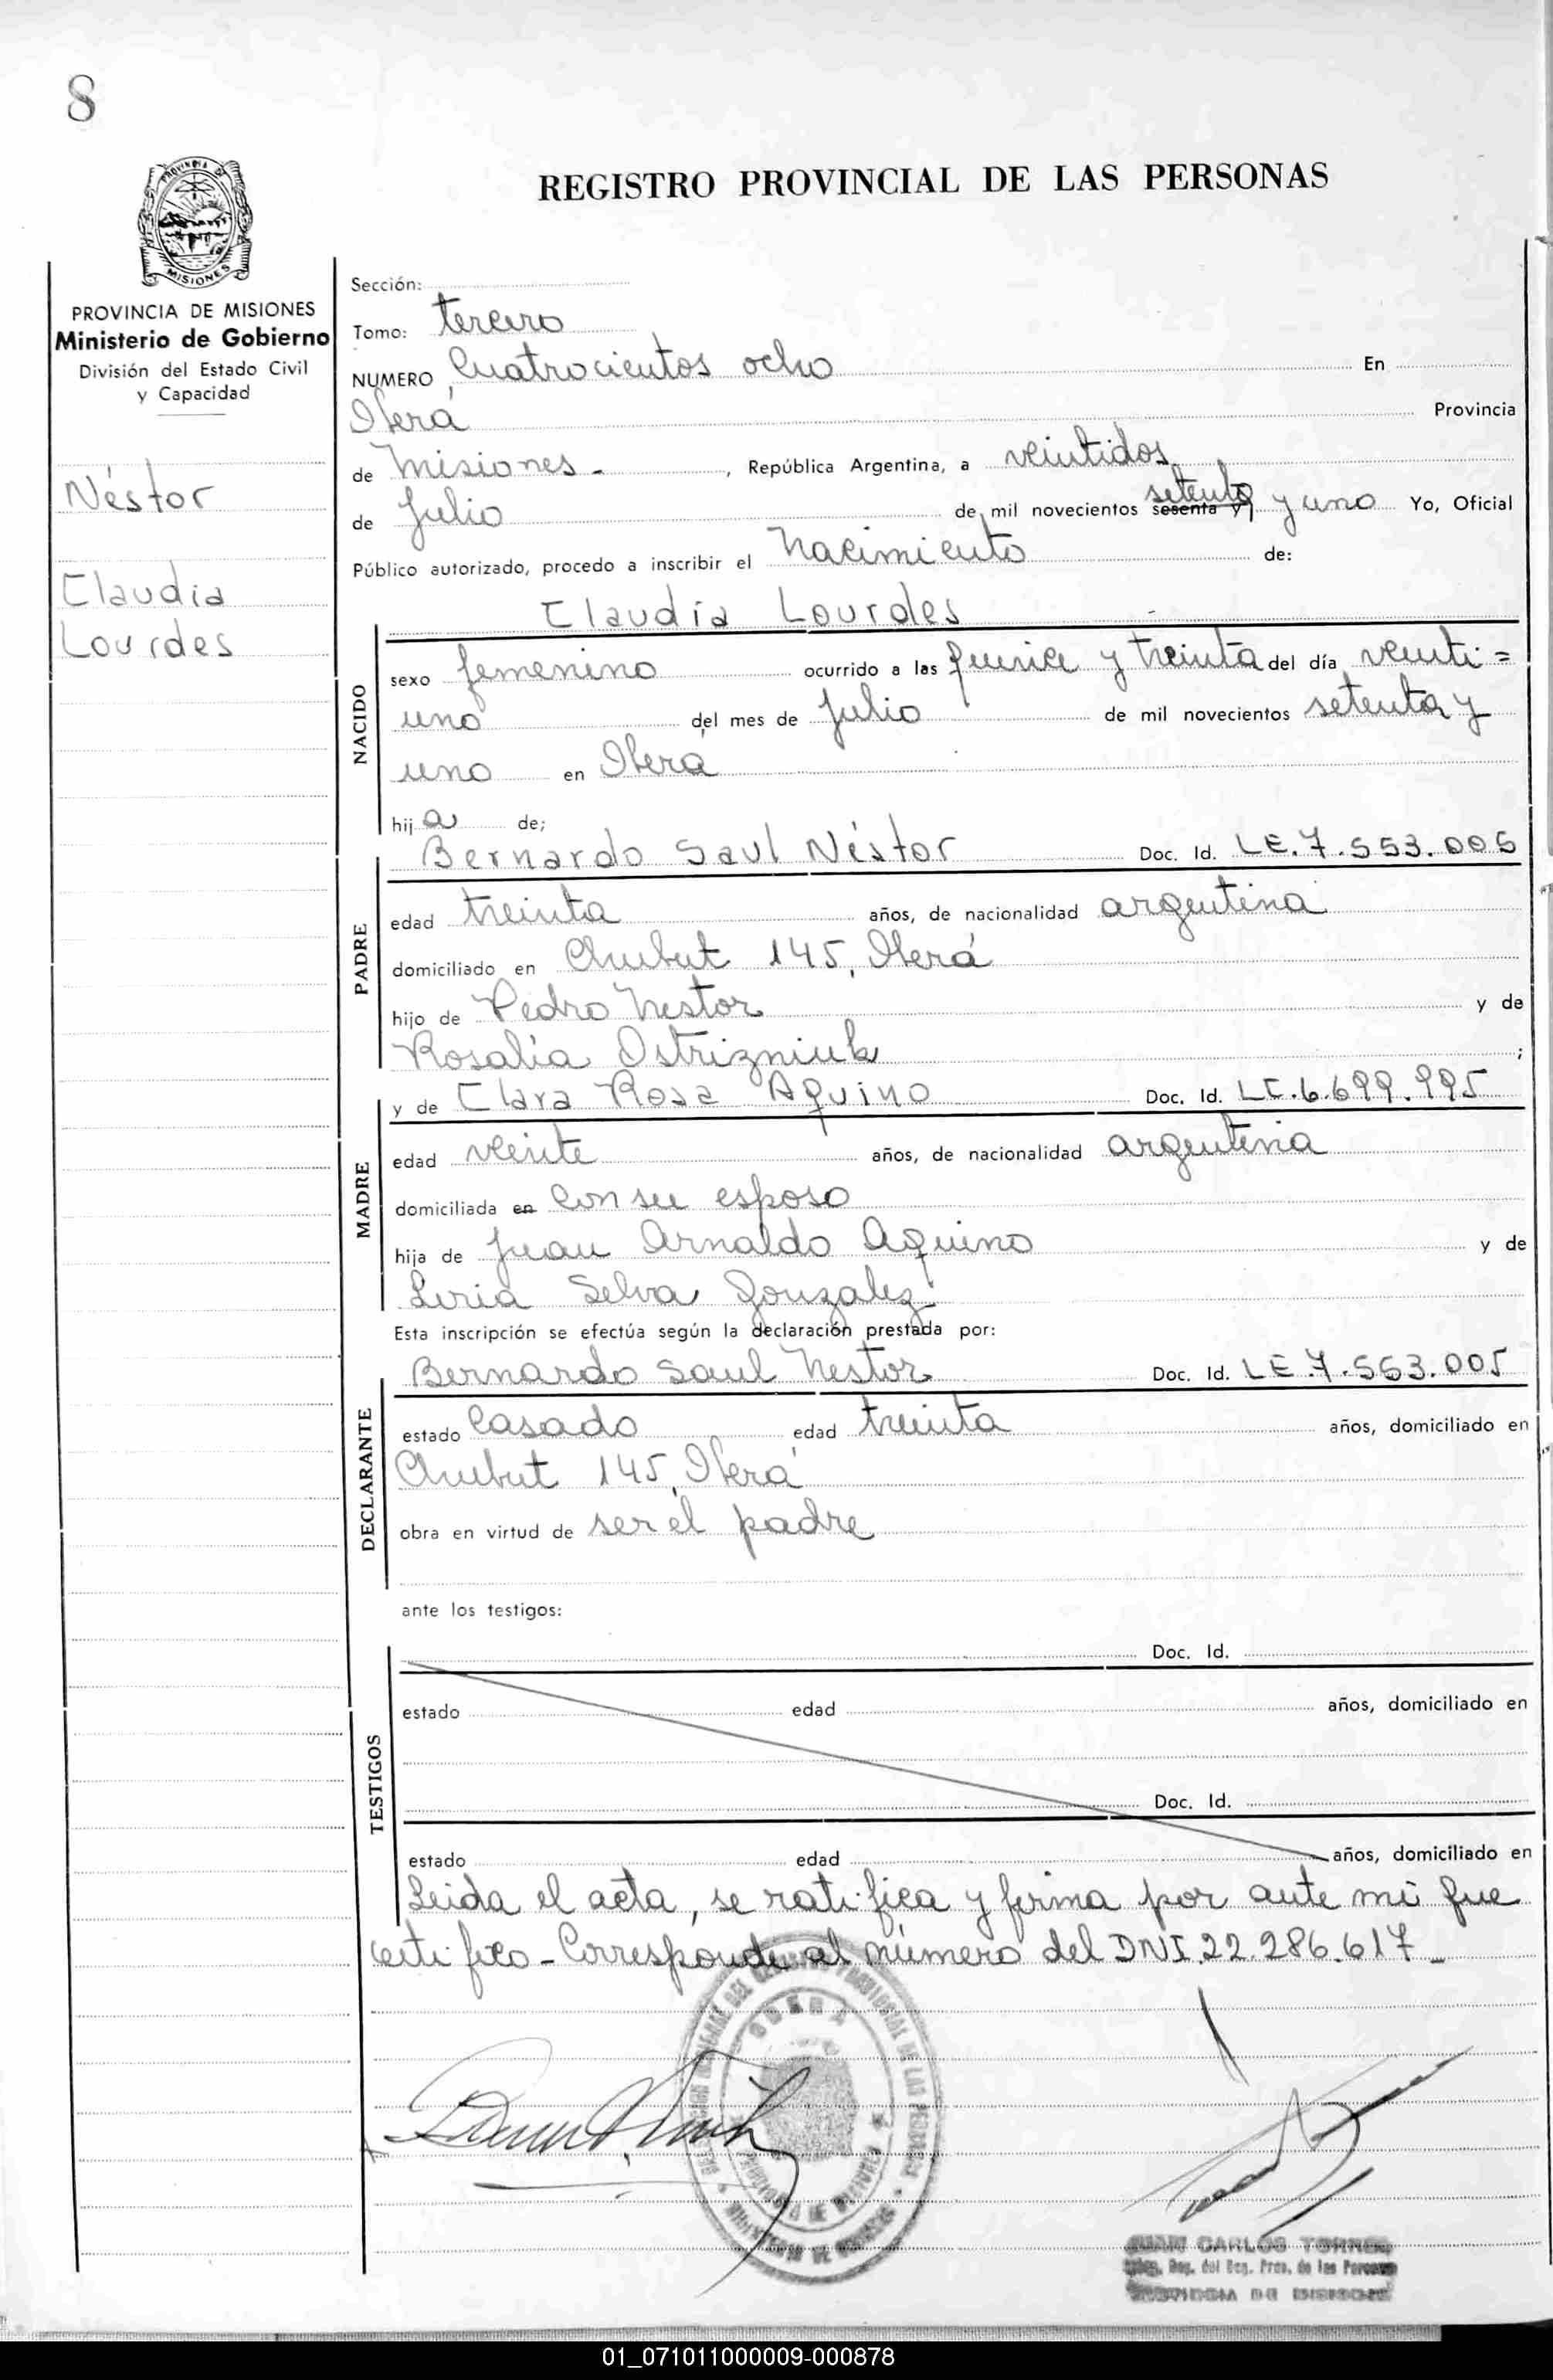 8
PROVINCIA DE
MISIONES
REGISTRO PROVINCIAL DE LAS PERSONAS
PROVINCIA DE MISIONES
Ministerio de Gobierno
División del Estado Civil
y Capacidad
Néstor
Claudia
Lourdes
Sección:
Tomo: tercero
NUMERO Cuatrocientos ocho En
Oberá Provincia
de Misiones - , República Argentina, a veintidos
de Julio de mil novecientos sesenta y setenta y uno Yo, Oficial
Público autorizado, procedo a inscribir el nacimiento de:
Claudia Lourdes
NACIDO
sexo femenino ocurrido a las quince y treinta del día veinti=
uno del mes de Julio de mil novecientos setenta y
uno en Oberá
hija de;
PADRE
Bernardo Saul Néstor Doc. Id. LE.7.553.005
edad treinta años, de nacionalidad argentina
domiciliado en Chubut 145, Oberá
hijo de Pedro Nestor y de
Rosalía Ostrizniuk ;
MADRE
y de Clara Rosa Aquino Doc. Id. LC.6.699.995
edad veinte años, de nacionalidad argentina
domiciliada en con su esposo
hija de Juan Arnaldo Aquino y de
Liria Selva Gonzalez
Esta inscripción se efectúa según la declaración prestada por:
DECLARANTE
Bernardo Saul Nestor Doc. Id. LE.7.553.005
estado casado edad treinta años, domiciliado en
Chubut 145, Oberá
obra en virtud de ser el padre
ante los testigos:
TESTIGOS
Doc. Id.
estado edad años, domiciliado en
Doc. Id.
estado edad años, domiciliado en
Leida el acta, se ratifica y firma por ante mi que
certifico - Corresponde al número del DNI.22.286.617 -
OBERA
PROVINCIA DE MISIONES
JUAN CARLOS TORRES
Deg. del Reg. Prov. de las Personas
PROVINCIA DE MISIONES
01_071011000009-000878